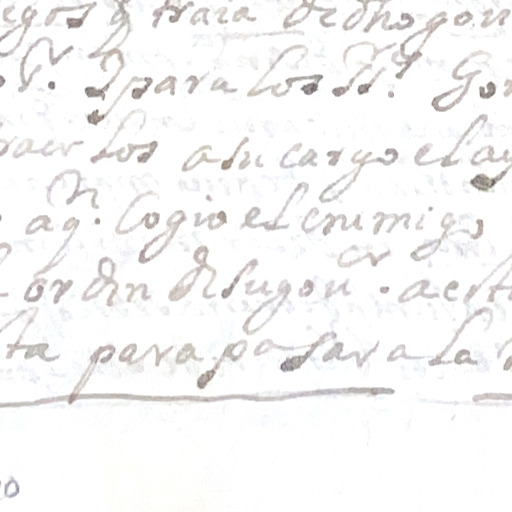 egos q traia dedho gou
sr. Y para los ss.s Gou
traer los a su cargo el ay
aqn. Cogio el enimigo
orden de su gour. a esta
ta para pasar a la